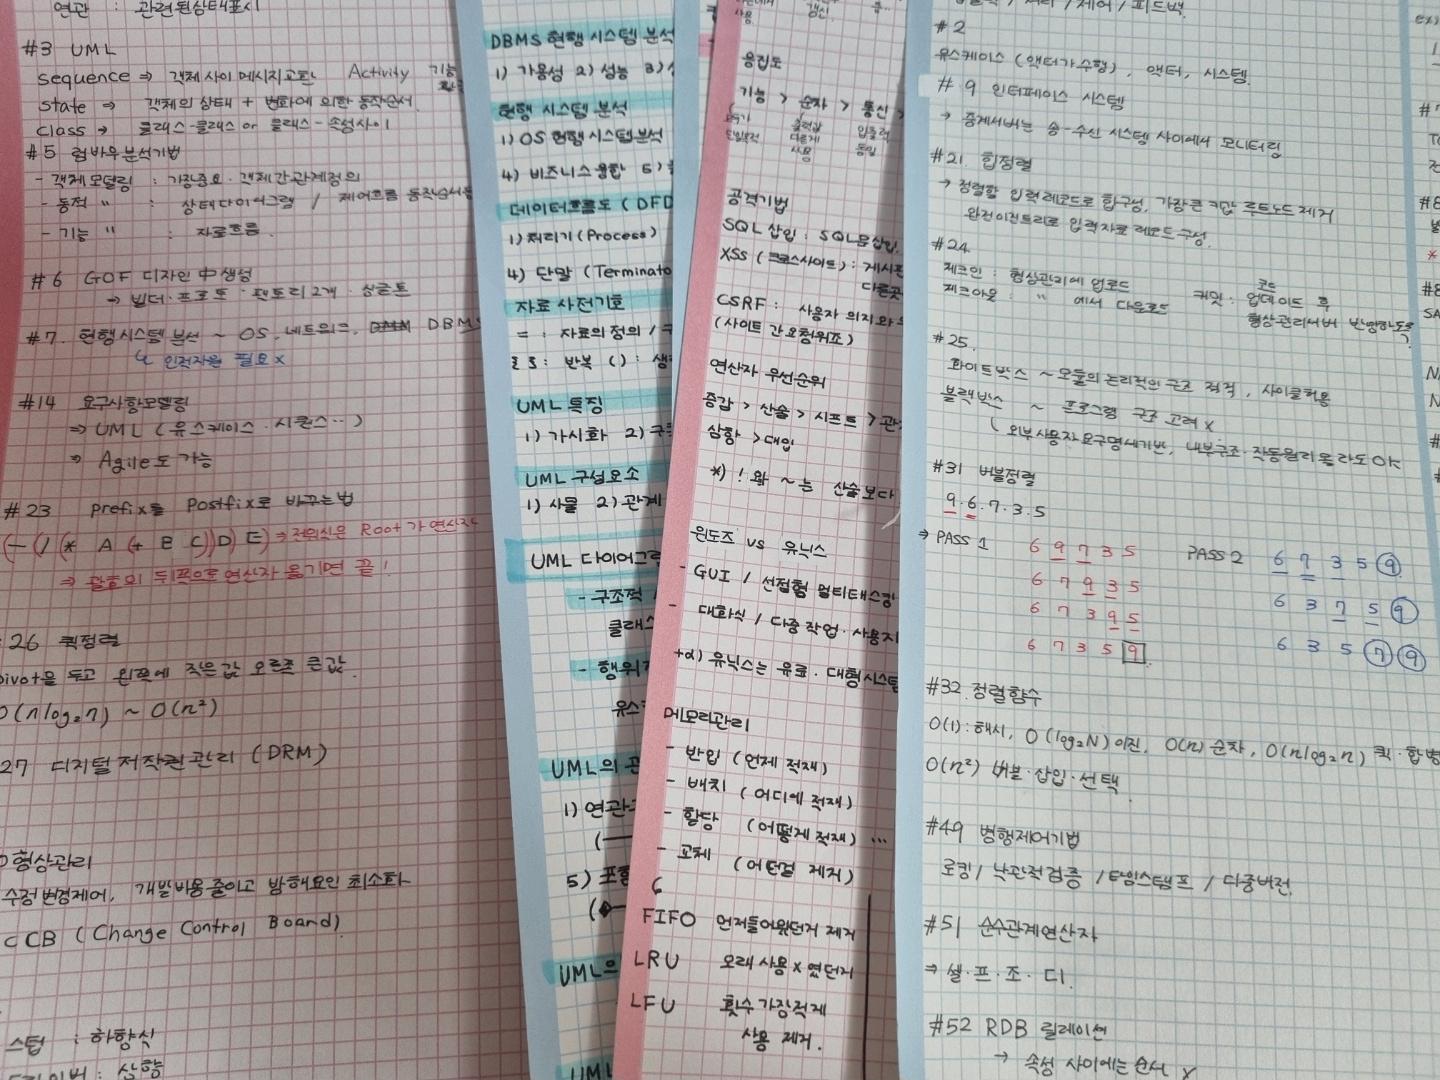 연관 : 관련된상태표시
#3 UML
sequence ⇒ 객체사이 메시지교환 Activity 기능
state ⇒ 객체의 상태 + 변화에 의한 동작순서.
class → 클래스-클래스 or 클래스-속성사이
#5 럼바우분석기법
- 객체모델링 : 가장중요. 객체간관계정의
- 동적 " : 상태다이어그램 / 제어흐름 동작순서
- 기능 " : 자료흐름.
#6 GOF 디자인 中생성
→ 빌더·프로토·팩토리2개·싱글톤
#7. 현행시스템 분석 ~ OS, 네트워크, DBMS
↳ 인적자원 필요 x
#14 요구사항모델링
⇒ UML (유스케이스·시퀀스··)
⇒ Agile도 가능
#23 Prefix를 Postfix로 바꾸는법
(- (/ (* A (+ B C)) D) E) ⇒ 전위식은 Root가 연산자
⇒ 괄호의 뒤쪽으로 연산자 옮기면 끝!
26 퀵정렬
pivot을 두고 왼쪽에 작은값 오른쪽 큰값.
O(nlog₂n) ~ O(n²)
27 디지털저작권관리 (DRM)
형상관리
수정변경제어, 개발비용줄이고 방해요인 최소화
CCB (Change Control Board)
스텁 : 하향식
드라이버 : 상향
DBMS 현행 시스템 분석
1) 가용성 2) 성능 3)
현행 시스템 분석
1) OS 현행시스템분석
4) 비즈니스융합 5)
데이터흐름도 (DFD
1) 처리기 (Process)
4) 단말 (Terminato
자료 사전기호
= : 자료의 정의 /
{ } : 반복 ( ) : 생
UML 특징
1) 가시화 2) 구
UML 구성요소
1) 사물 2) 관계
UML 다이어그
- 구조적
클래스
- 행위
유스
UML의 관
1) 연관
(—
5) 포함
(◆—
UML의
UML
응집도
기능 > 순차 > 통신 >
공격기법
SQL 삽입 : SQL문삽입.
XSS (크로스사이트) : 게시판
다른곳
CSRF : 사용자 의지와
(사이트 간 요청위조)
연산자 우선순위
증감 > 산술 > 시프트 > 관
삼항 > 대입
*) ! 와 ~ 는 산술보다
윈도즈 vs 유닉스
- GUI / 선점형 멀티태스킹
- 대화식 / 다중작업·사용자
+α) 유닉스는 유료. 대형시스템
메모리관리
- 반입 (언제 적재)
- 배치 (어디에 적재)
- 할당 (어떻게 적재) ···
- 교체 (어떤걸 제거)
FIFO 먼저들어왔던거 제거
LRU 오래 사용 x 였던거
LFU 횟수 가장적게
사용 제거.
/ 제어 / 피드백.
#2
유스케이스 (액터가수행), 액터, 시스템.
#9 인터페이스 시스템
→ 중계서버는 송-수신 시스템 사이에서 모니터링
#21. 힙정렬
→ 정렬할 입력레코드로 힙구성. 가장큰 키값 루트노드제거
완전이진트리로 입력자료 레코드구성.
#24
체크인 : 형상관리에 업로드 커밋 : 업데이트 후
체크아웃 : " 에서 다운로드 형상관리서버 반영하도록
#25.
화이트박스 ~ 모듈의 논리적인 구조 적격, 사이클허용
블랙박스 ~ 프로그램 구조 고려 x
( 외부사용자요구명세기반, 내부구조·작동원리 몰라도 OK
#31 버블정렬
9·6·7·3·5
→ PASS 1 6 9 7 3 5 PASS 2 6 7 3 5 9
6 7 9 3 5 6 3 7 5 9
6 7 3 9 5 6 3 5 7 9
6 7 3 5 9
#32. 정렬함수
O(1) : 해시, O(log₂N) 이진, O(n) 순차, O(nlog₂n) 퀵·합병
O(n²) 버블·삽입·선택
#49 병행제어기법
로킹 / 낙관적검증 / 타임스탬프 / 다중버전.
#51 순수관계연산자
→ 셀·프·조·디.
#52 RDB 릴레이션
→ 속성 사이에는 순서 x